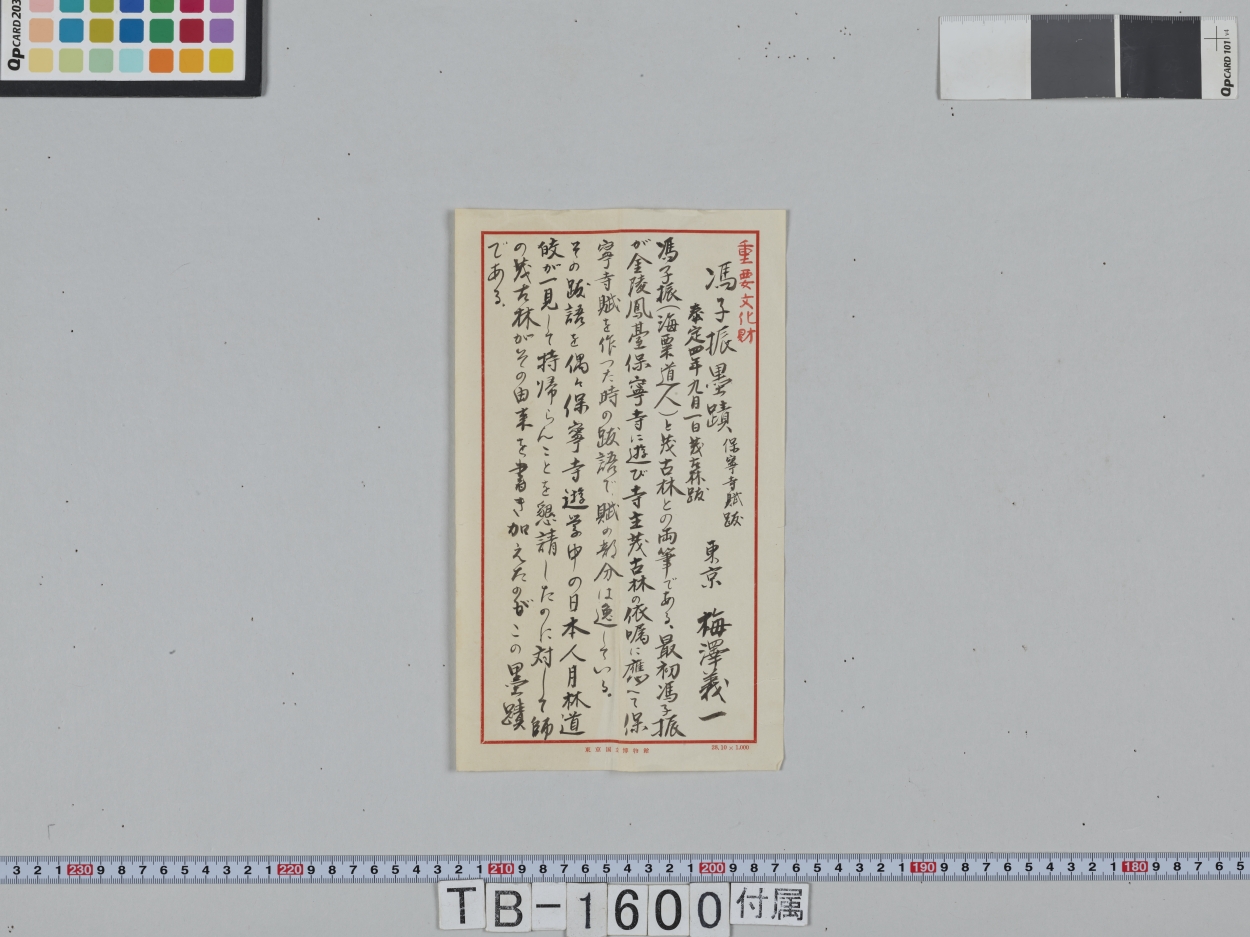 重要文化財
馮子振墨蹟 保寧寺賦跋 東京 梅澤義一
泰定四年九月一日茂古林跋
馮子振(海粟道人)と茂古林との両筆である、最初馮子振
が金陵鳳臺保寧寺に遊び寺主茂古林の依嘱に應へて保
寧寺賦を作つた時の跋語で賦の部分は逸している。
その跋語を偶々保寧寺遊学中の日本人月林道
皎が一見して持帰らんことを懇請したのに対して師
の茂古林がその由来を書き加えたのがこの墨蹟
である。
東京国立博物館 28.10×5.000
QPCARD 203
QPCARD 101 v4
3 2 1 230 9 8 7 6 5 4 3 2 1 220 9 8 7 6 5 4 3 2 1 210 9 8 7 6 5 4 3 2 1 200 9 8 7 6 5 4 3 2 1 190 9 8 7 6 5 4 3 2 1 180 9 8 7 6 5
TB-1600付属